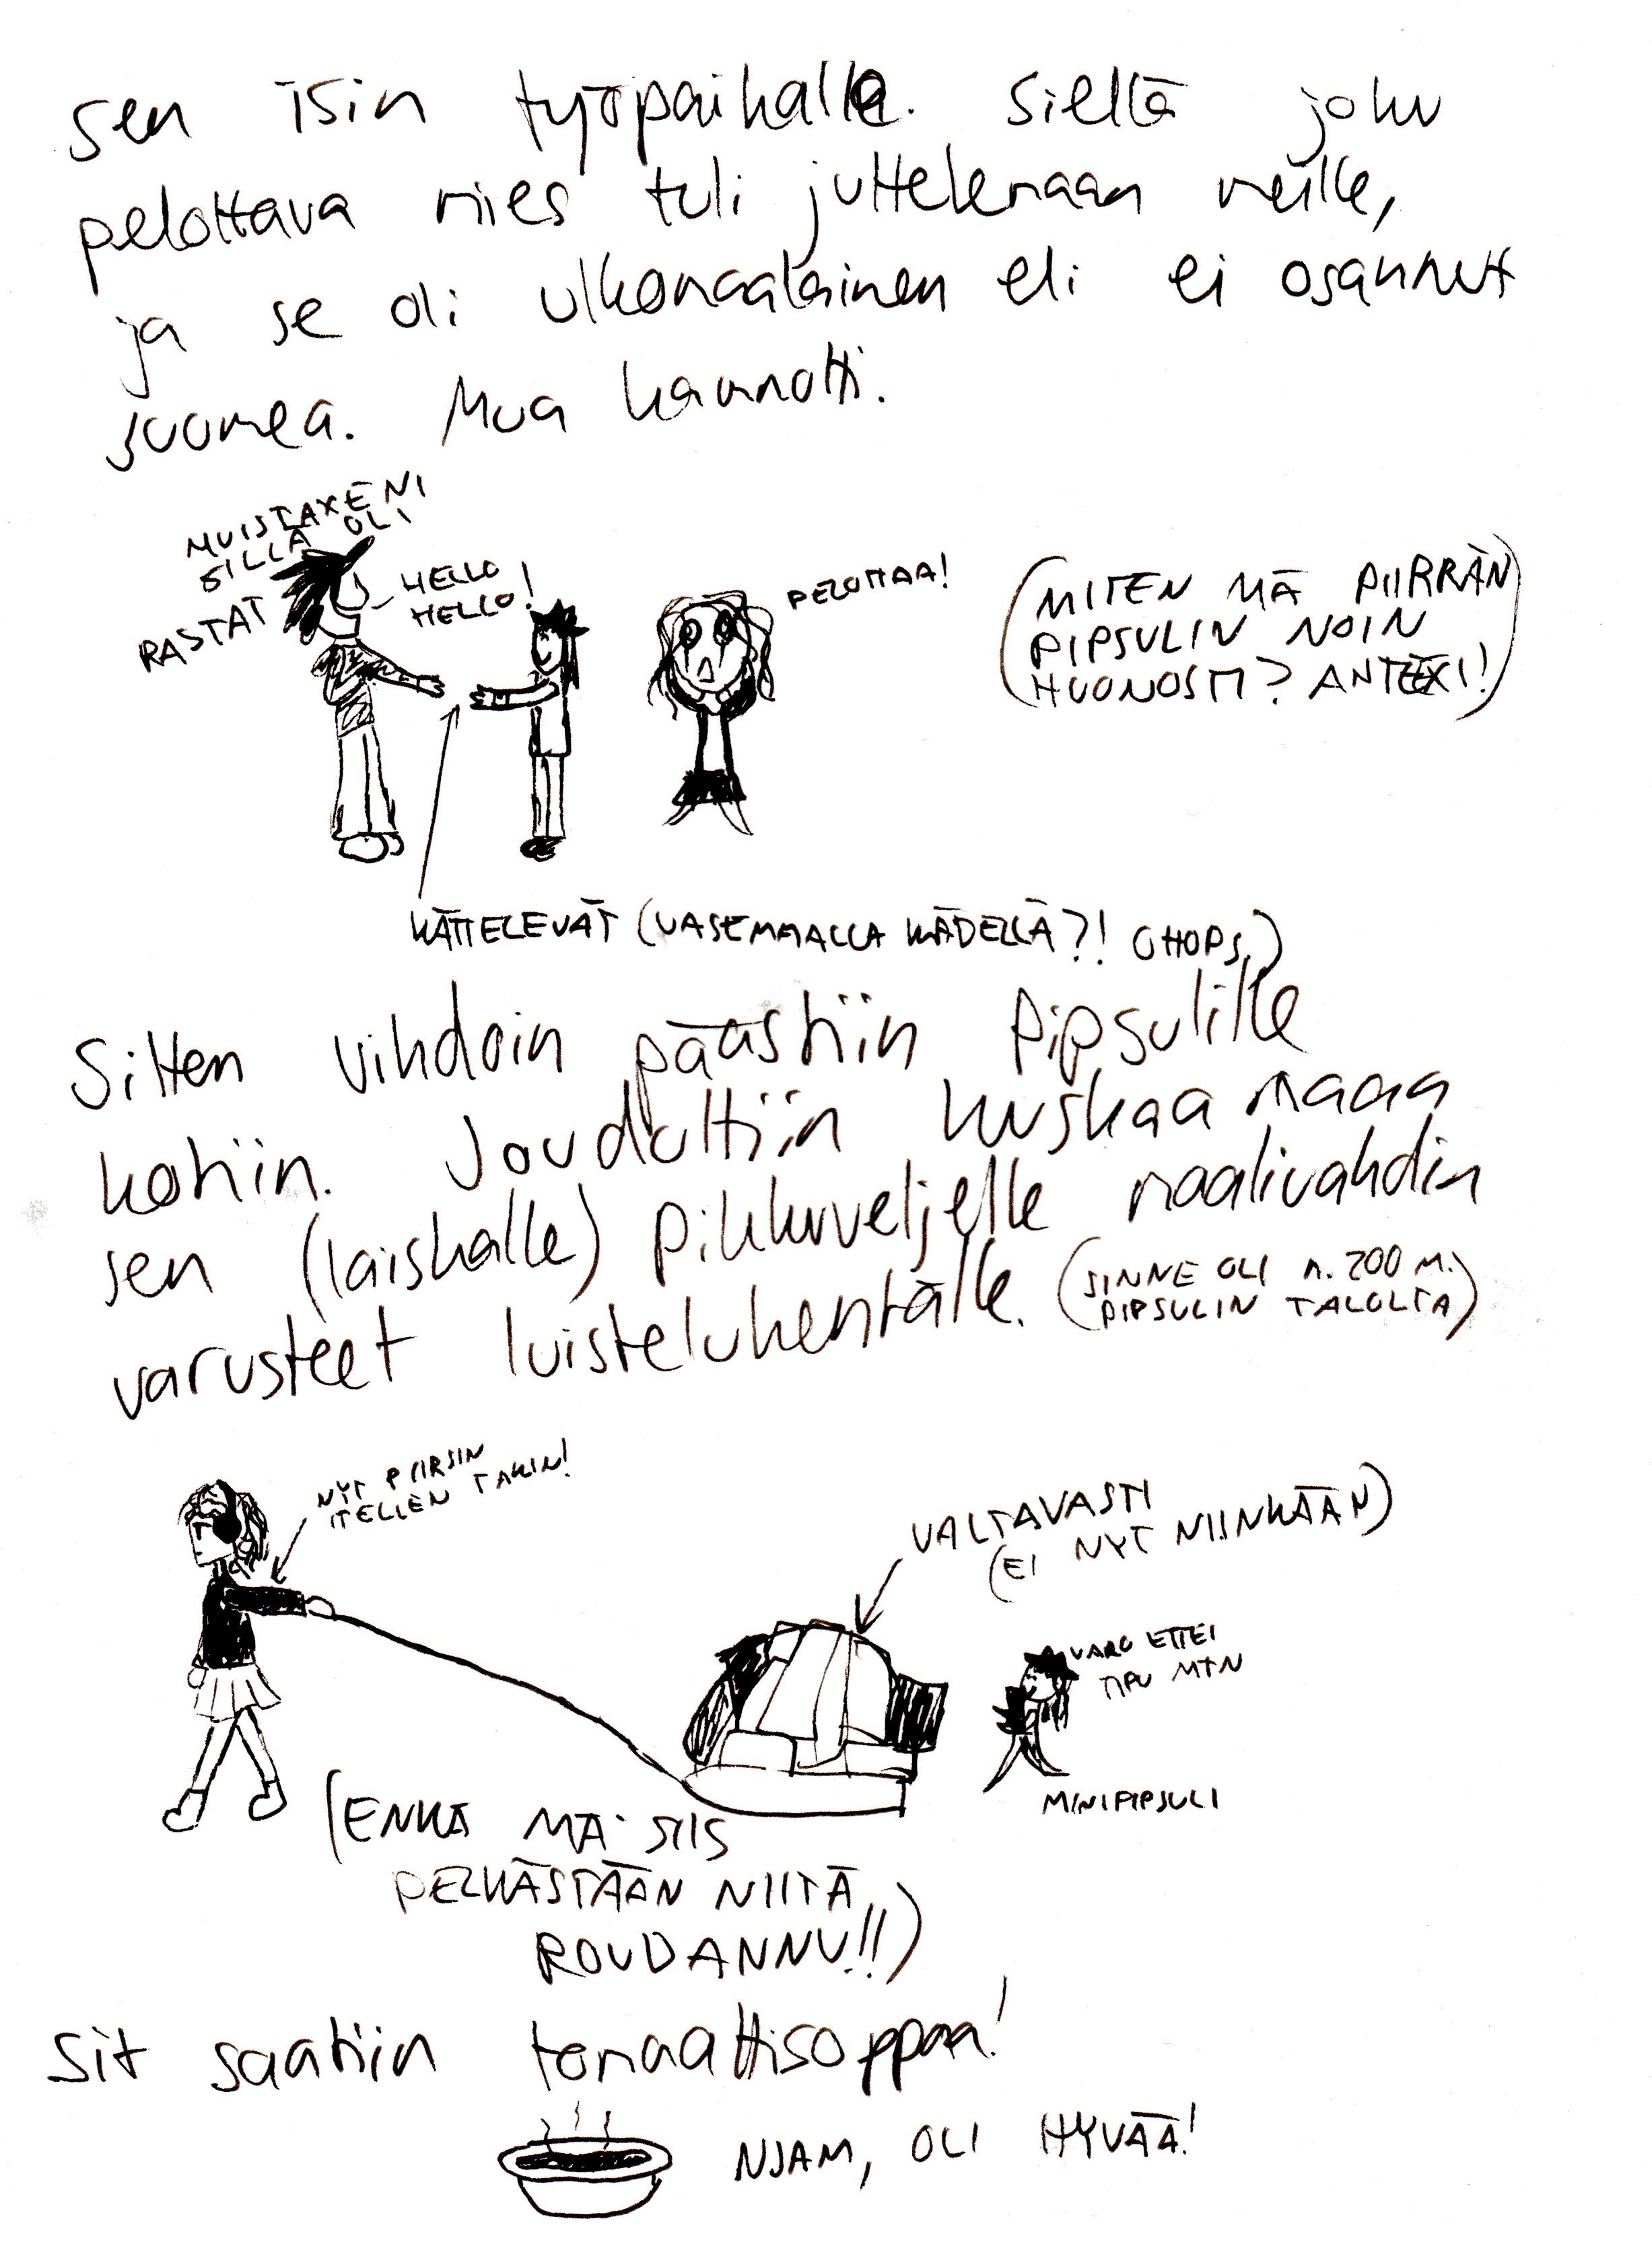 sen isin työpaikalle. Sieltä joku
pelottava mies tuli juttelemaan meille,
ja se oli ulkomaalainen eli ei osannut
suomea. Mua kammotti.
MUISTAXENI
SILLÄ OLI
RASTAT
HELLO
HELLO!
PELOTTAA!
(MITEN MÄ PIIRRÄN
PIPSULIN NOIN
HUONOSTI? ANTEEXI!)
KÄTTELEVÄT (VASEMMALLA KÄDELLÄ?! OHOPS.)
Sitten vihdoin päästiin Pipsulille
kotiin. Jouduttiin kuskaamaan
sen (laiskalle) pikkuveljelle maalivahdin
varusteet luistelukentälle. (SINNE OLI N. 200 M.
PIPSULIN TALOLTA)
NYT PIIRSIN
ITELLEN TAKIN!
VALTAVASTI
(EI NYT NIINKÄÄN)
VARO ETTEI
TIPU MTN
MINIPIPSULI
(ENKÄ MÄ SIIS
PELKÄSTÄÄN NIITÄ
ROUDANNU!!)
Sit saatiin tomaattisoppaa!
NJAM, OLI HYVÄÄ!